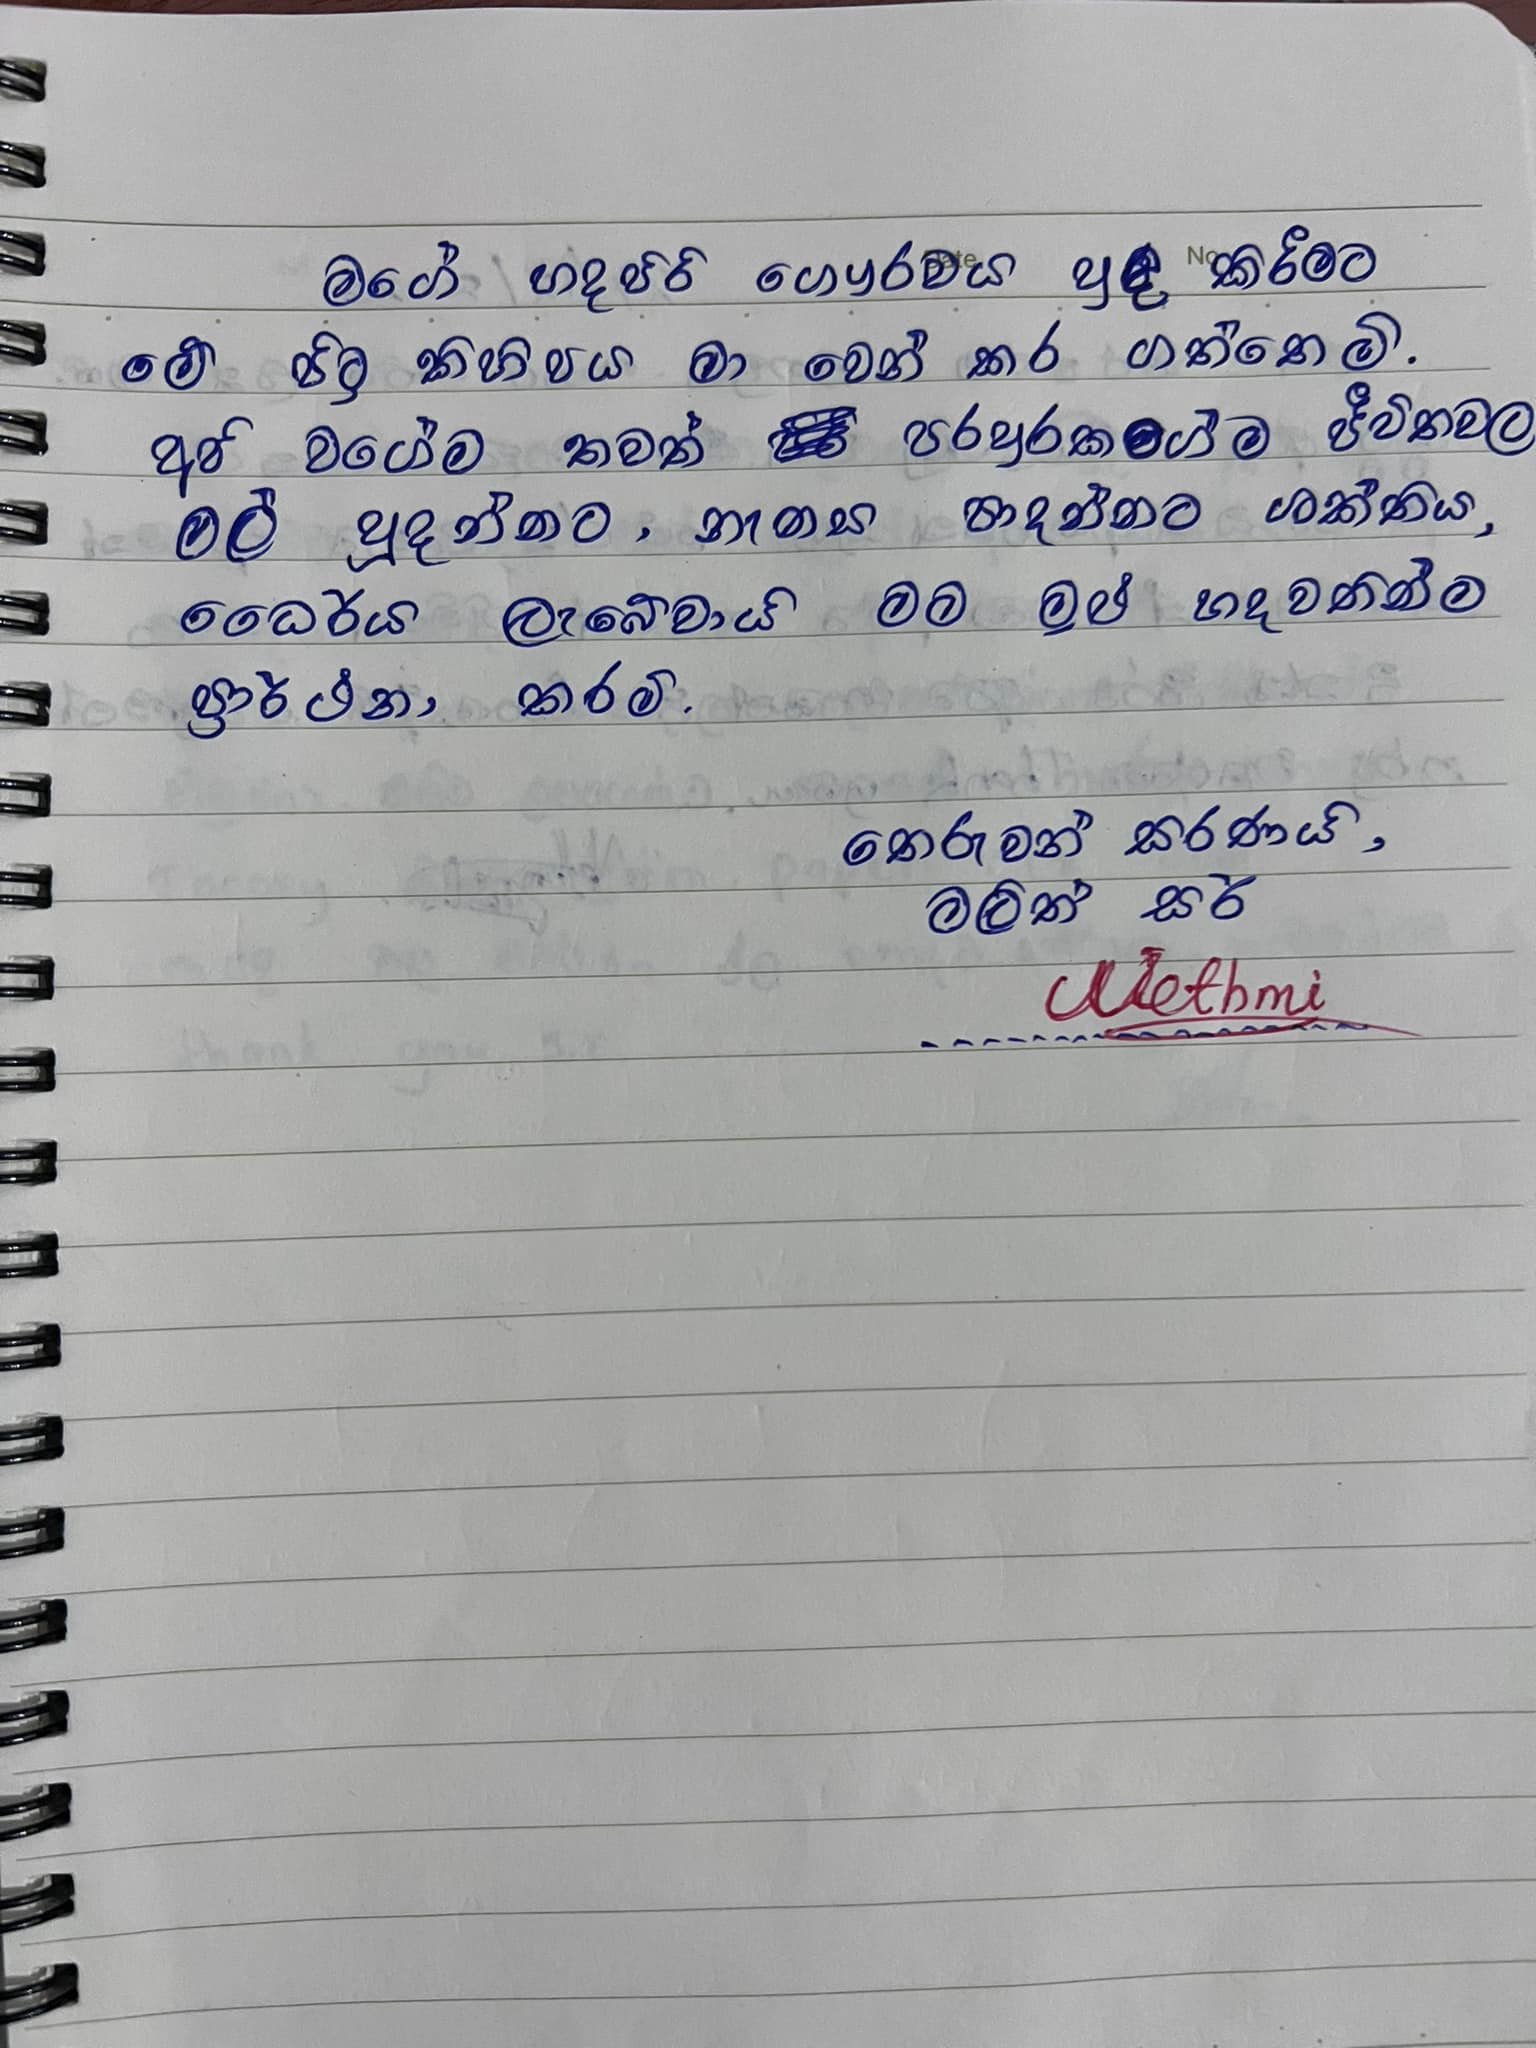 මගේ හදපිරි ගෞරවය පුද කිරීමට
මේ පිටු කිහිපය මා වෙන් කර ගත්තෙමි.
අපි වගේම තවත් පරපුරකගේම ජීවිතවල
මල් පුදන්නට, නැනස පාදන්නට ශක්තිය,
ධෛර්ය ලැබේවායි මම මුළු හදවතින්ම
ප්‍රාර්ථනා කරමි.
තෙරුවන් සරණයි,
මලිත් සර්
Methmi